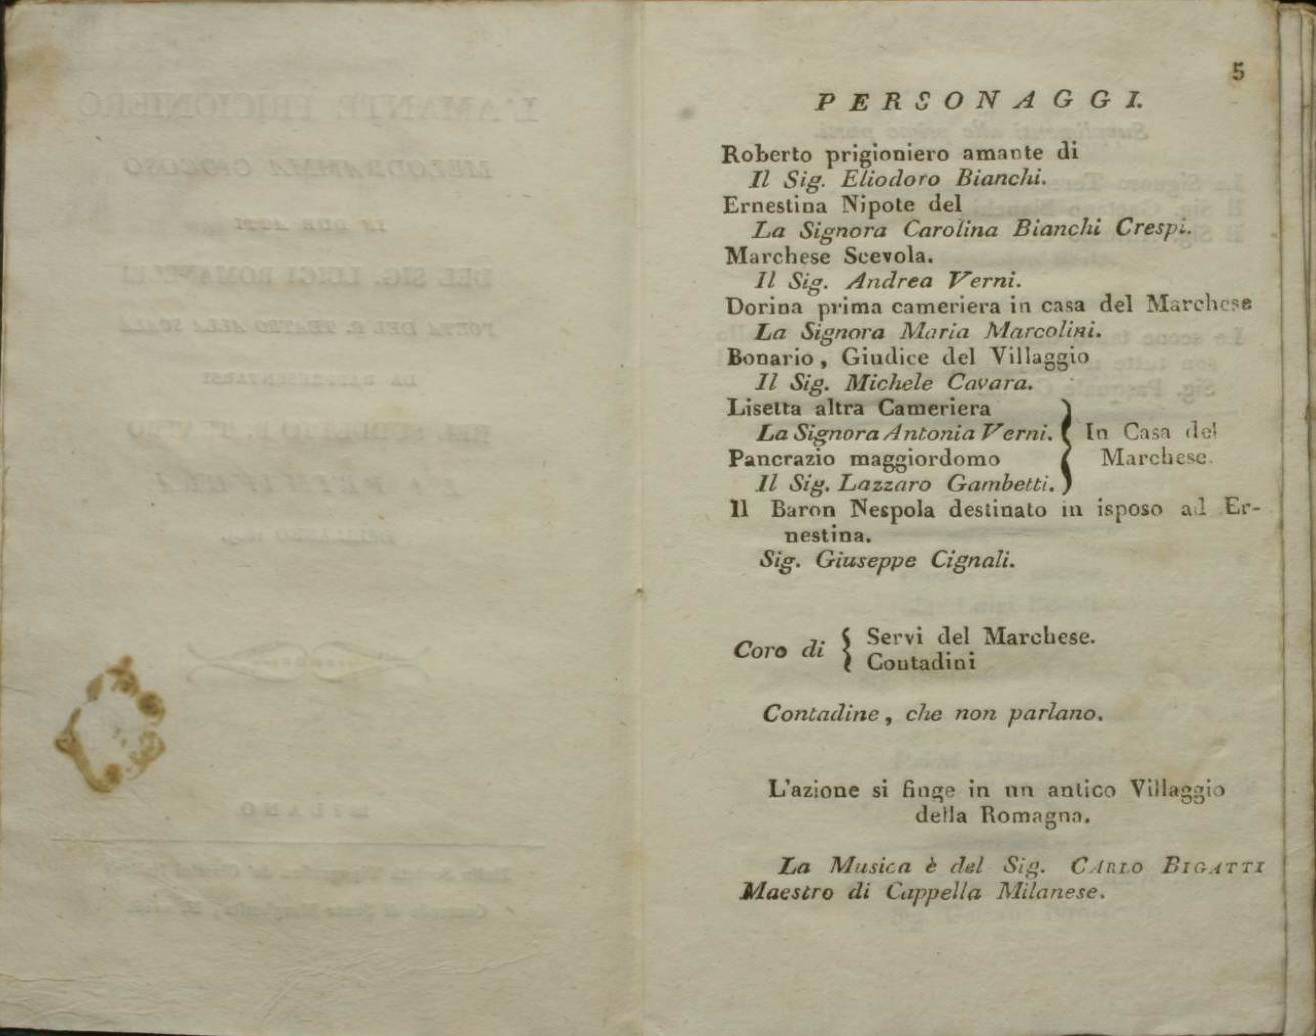 5
PERSONAGGI.
Roberto prigioniero amante di
Il Sig. Eliodoro Bianchi.
Ernestina Nipote del
La Signora Carolina Bianchi Crespi.
Marchese Scevola.
Il Sig. Andrea Verni.
Dorina prima cameriera in casa del Marchese
La Signora Maria Marcolini.
Bonario, Giudice del Villaggio
Il Sig. Michele Cavara.
Lisetta altra Cameriera
La Signora Antonia Verni.
Pancrazio maggiordomo
Il Sig. Lazzaro Gambetti.
In Casa del
Marchese.
Il Baron Nespola destinato in isposo ad Er-
nestina.
Sig. Giuseppe Cignali.
Coro di
Servi del Marchese.
Contadini
Contadine, che non parlano.
L'azione si finge in un antico Villaggio
della Romagna.
La Musica è del Sig. CARLO BIGATTI
Maestro di Cappella Milanese.